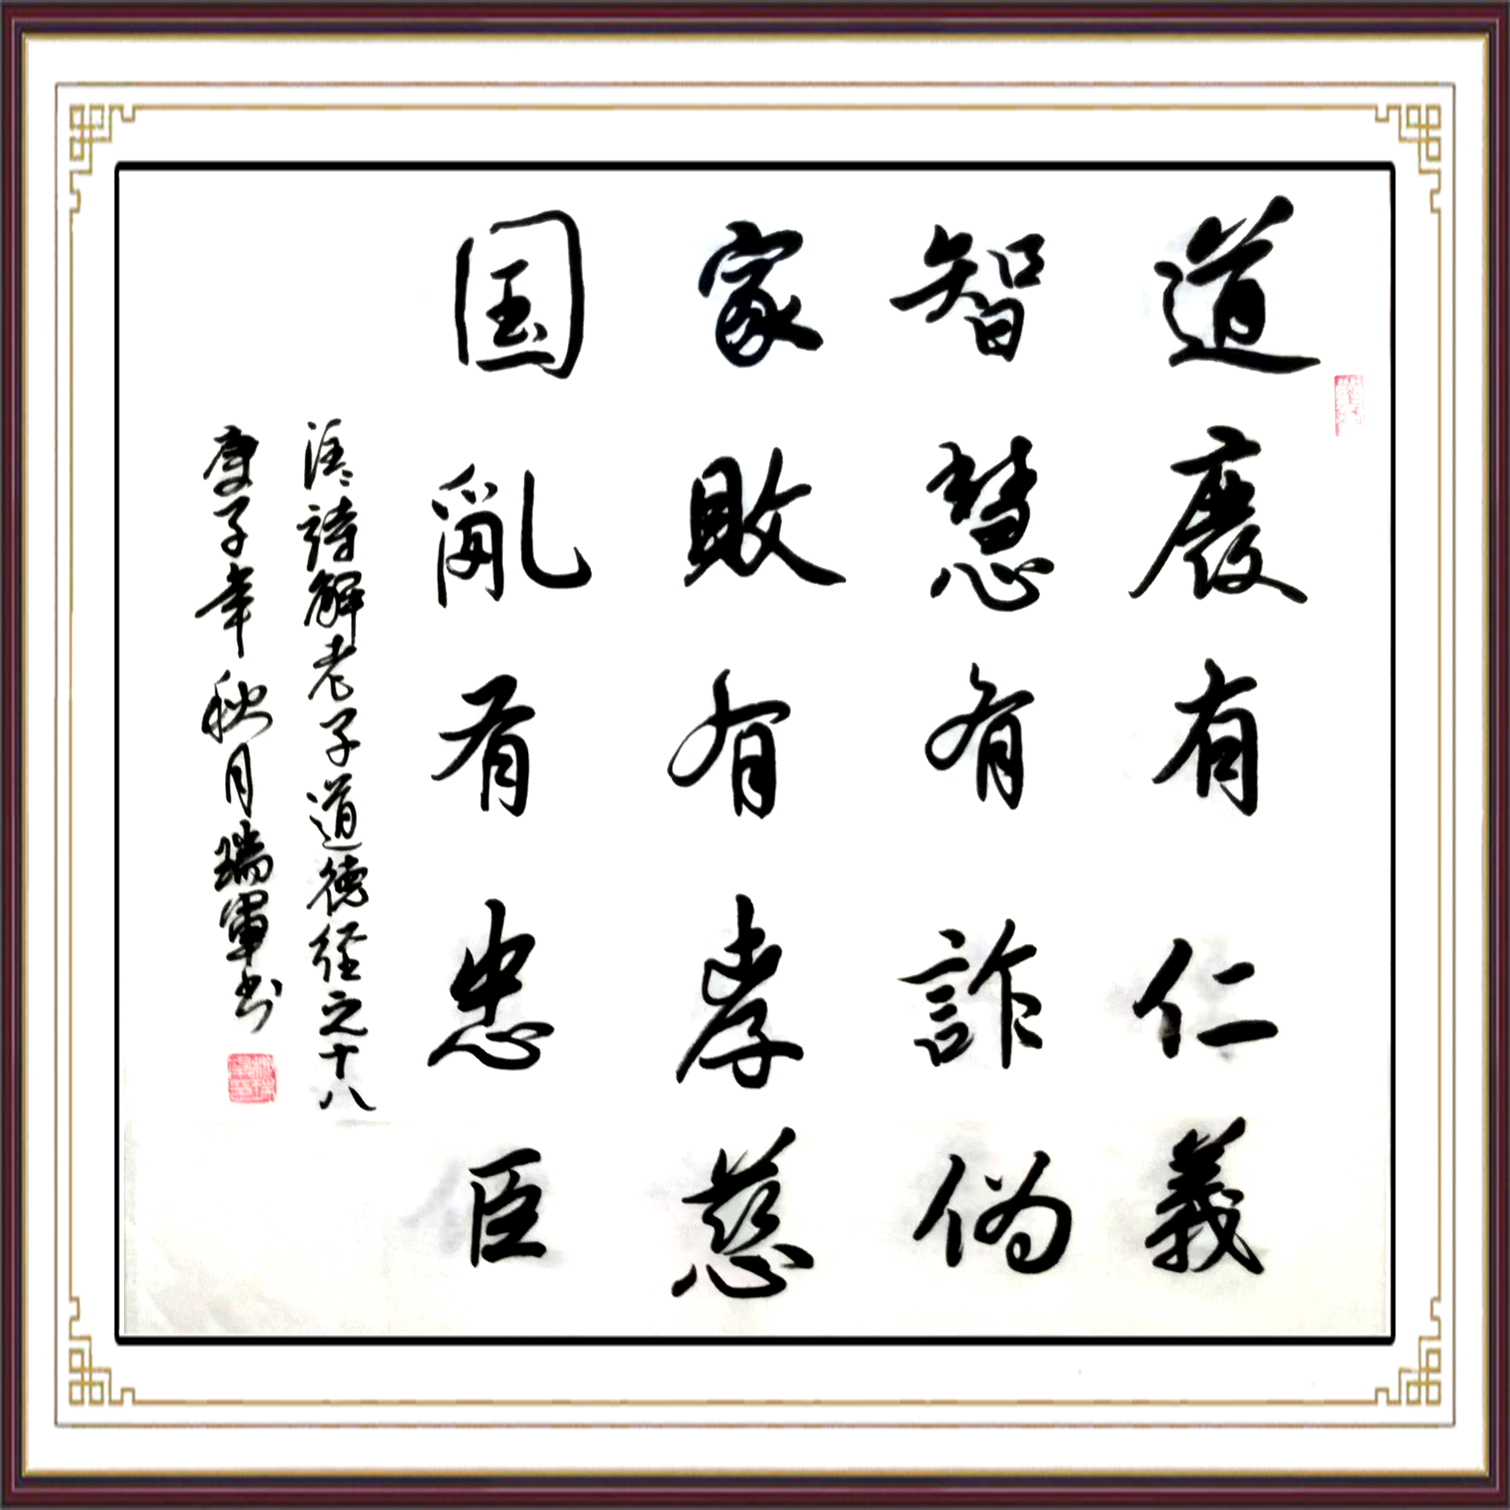 道廢有仁義
智慧有詐偽
家敗有孝慈
国亂有忠臣
詩解老子道德经之十八
庚子年秋月瑞軍书